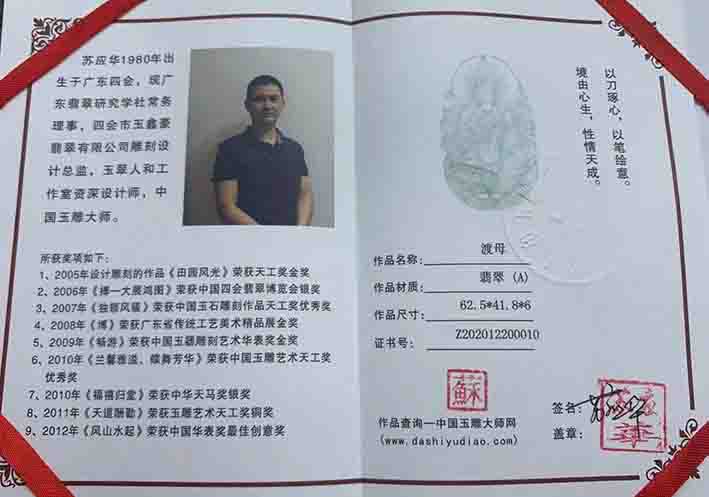 苏应华1980年出
生于广东四会，现广
东翡翠研究学社常务
理事，四会市玉鑫豪
翡翠有限公司雕刻设
计总监，玉翠人和工
作室资深设计师，中
国玉雕大师。
所获奖项如下：
1、2005年设计雕刻的作品《田园风光》荣获天工奖金奖
2、2006年《搏一大展鸿图》荣获中国四会翡翠博览会银奖
3、2007年《独领风骚》荣获中国玉石雕刻作品天工奖优秀奖
4、2008年《博》荣获广东省传统工艺美术精品展金奖
5、2009年《畅游》荣获中国玉器雕刻艺术华表奖金奖
6、2010年《兰馨雅溢、蝶舞芳华》荣获中国玉雕艺术天工奖
优秀奖
7、2010年《福禧归堂》荣获中华天马奖银奖
8、2011年《天道酬勤》荣获玉雕艺术天工奖铜奖
9、2012年《风山水起》荣获中国华表奖最佳创意奖
以刀琢心，以笔绘意。
境由心生，性情天成。
作品名称：渡母
作品材质：翡翠（A）
作品尺寸：62.5*41.8*6
证书号：Z202012200010
蘇
作品查询—中国玉雕大师网
(www.dashiyudiao.com)
签名：
盖章：